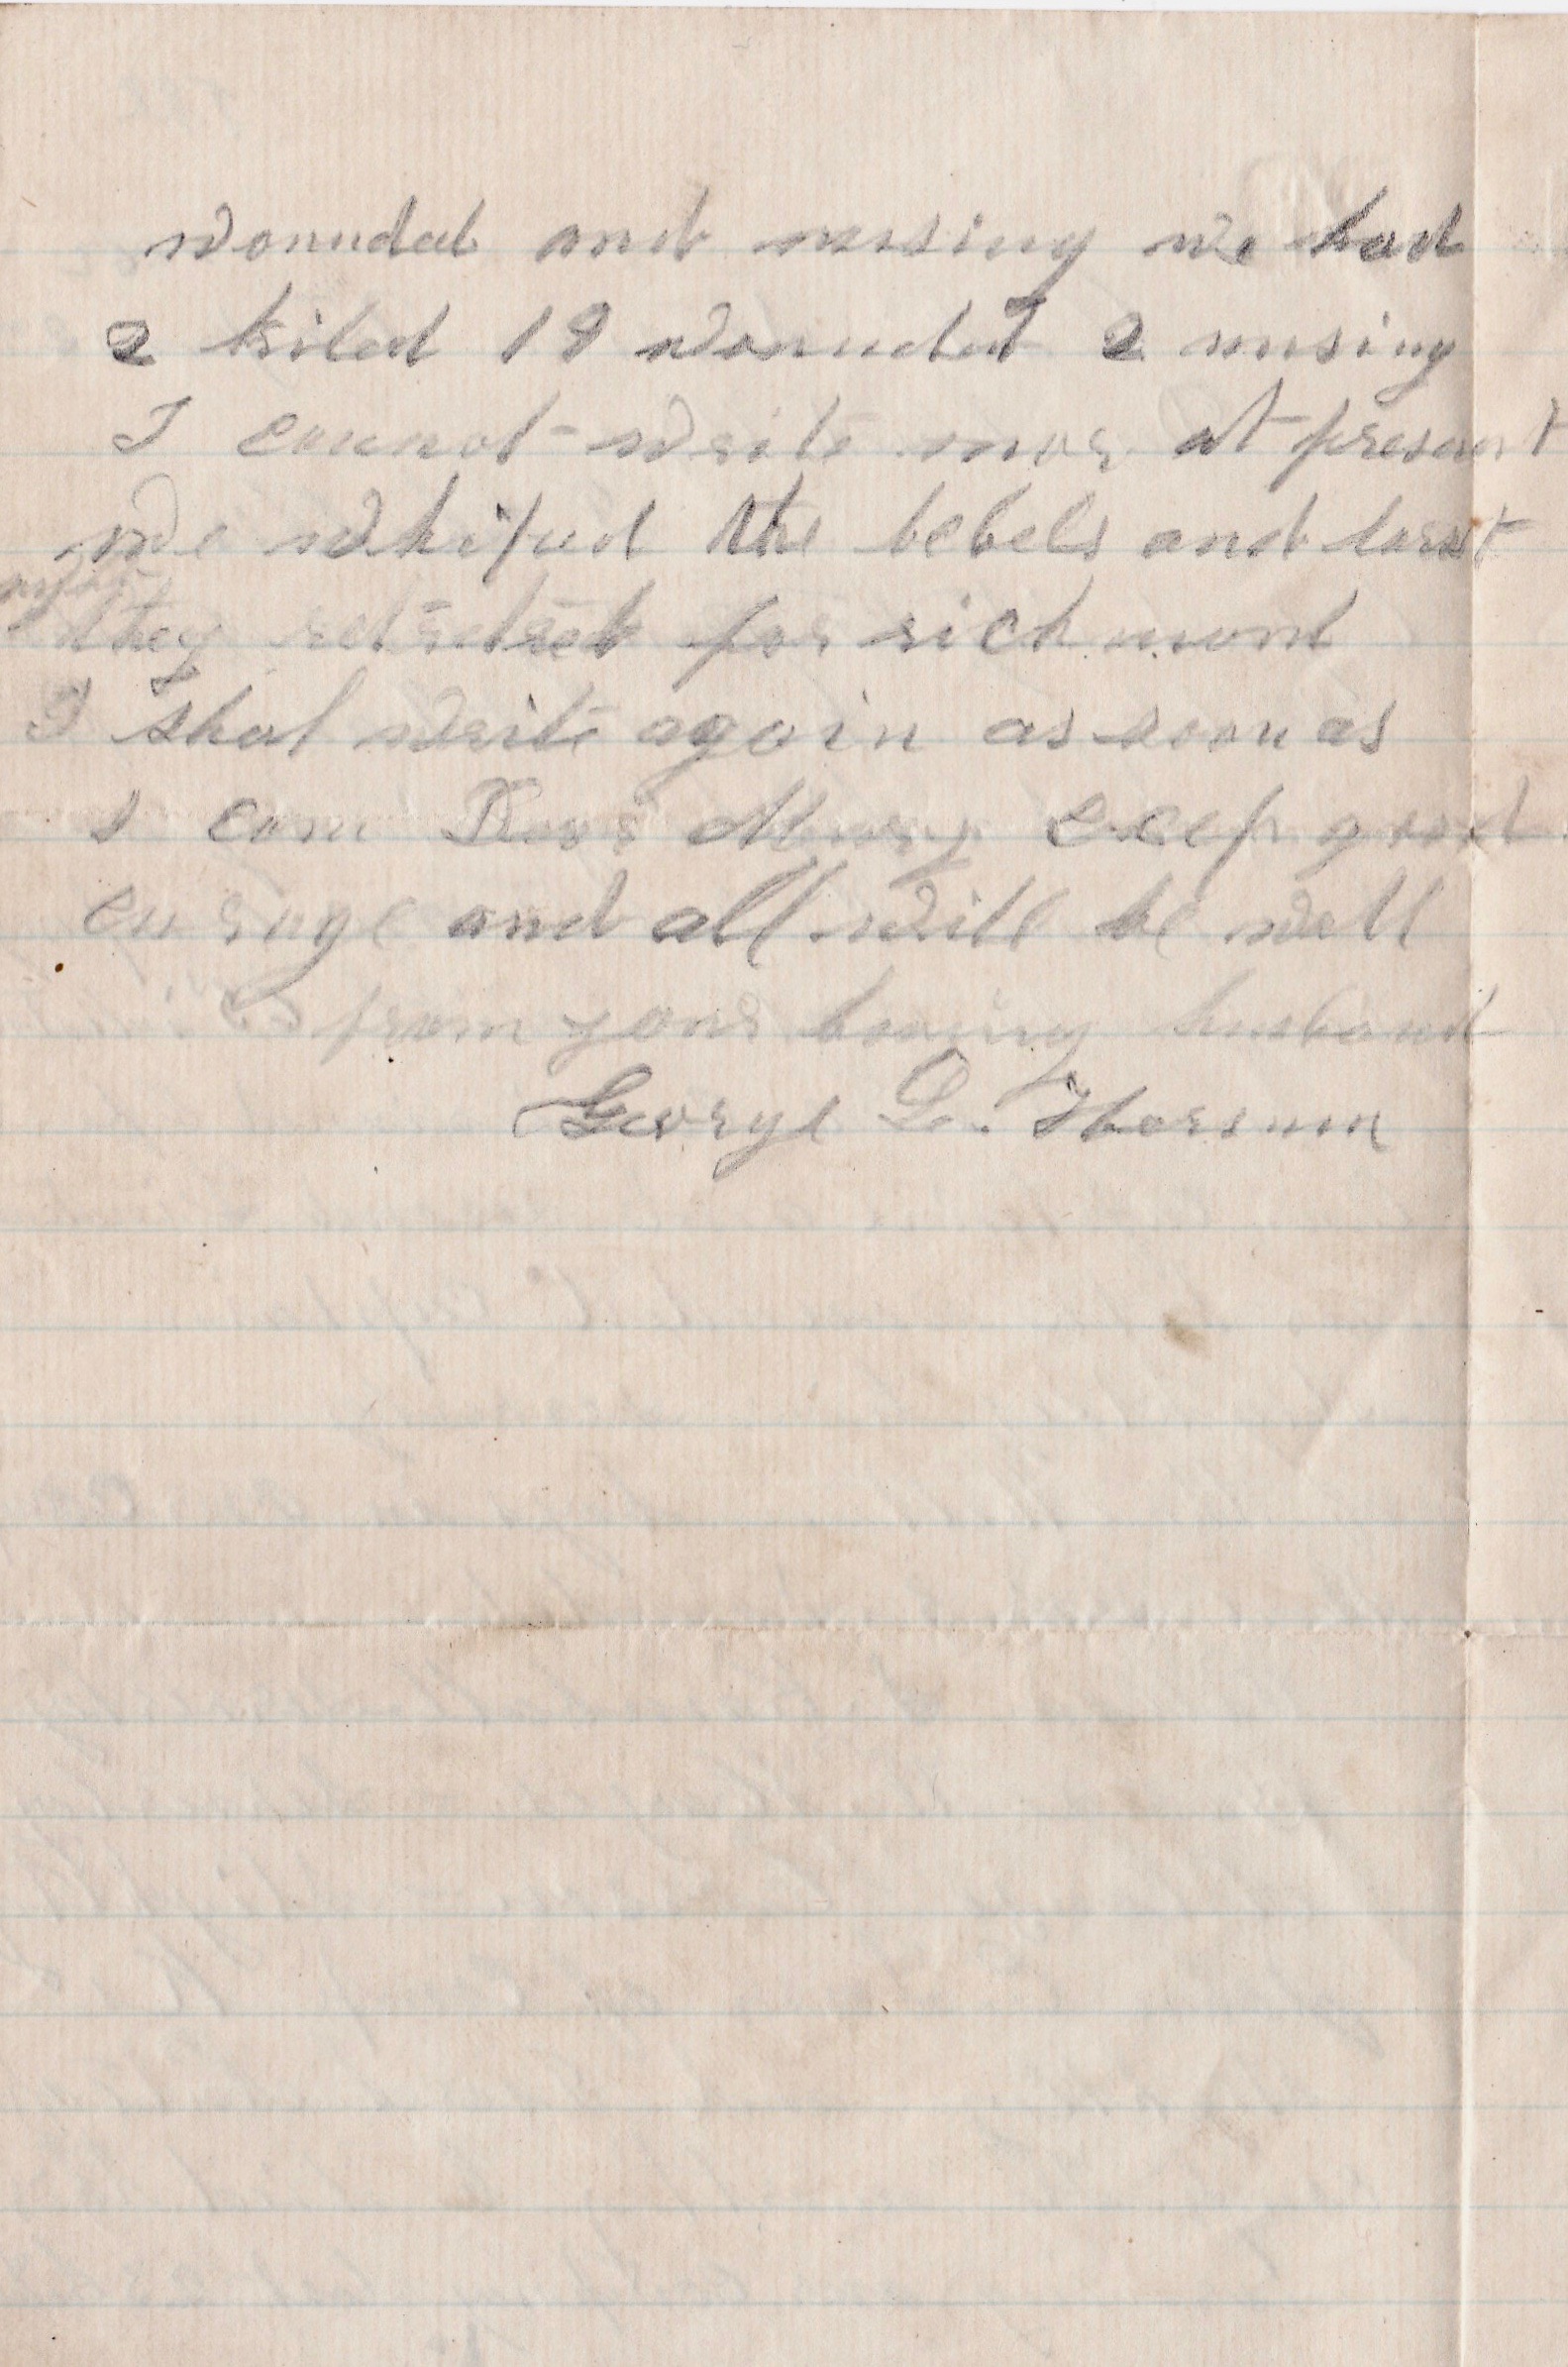 wounded and missing we had
2 kiled 19 wounded 2 missing
I cannot write mor at present
we whiped the bebels and last
they retreted for richmond
I shal write again as soon as
I can Dear Mary ceep good
curage and all will be well
from your loving husband
George D.